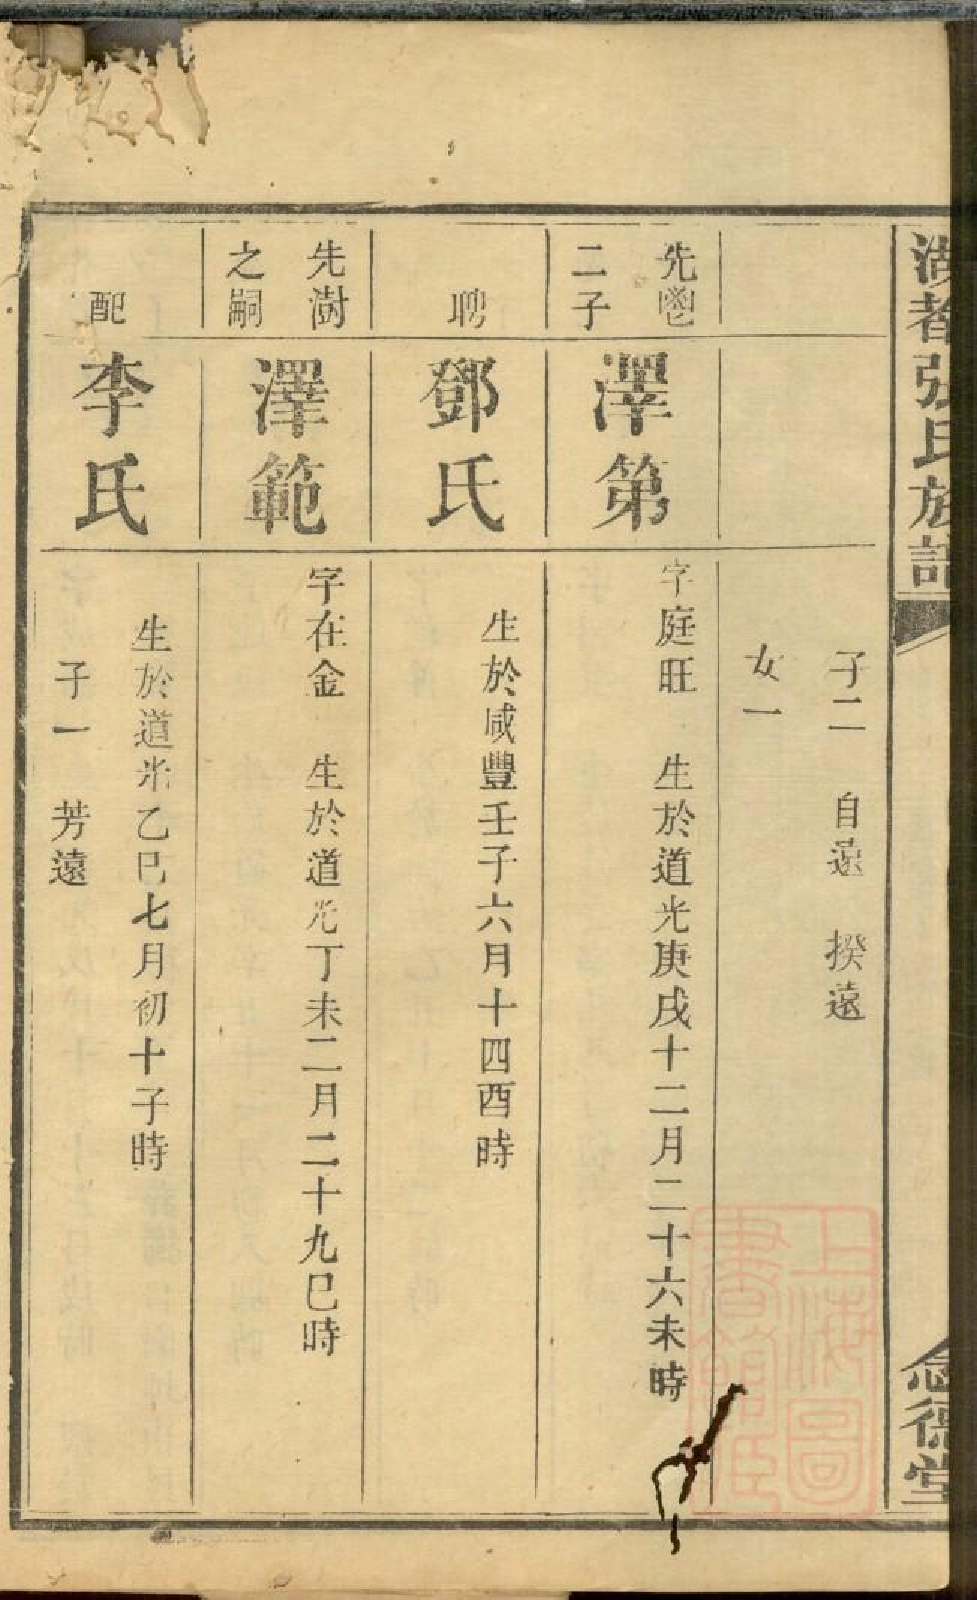 湖都張氏族譜
念德堂
子二　自遠　揆遠
女一
先鬯
二子
澤第
字庭旺　生於道光庚戌十二月二十六未時
聘
鄧氏
生於咸豐壬子六月十四酉時
先澍
之嗣
澤範
字在金　生於道光丁未二月二十九巳時
配
李氏
生於道光乙巳七月初十子時
子一　芳遠
上海圖
書館藏